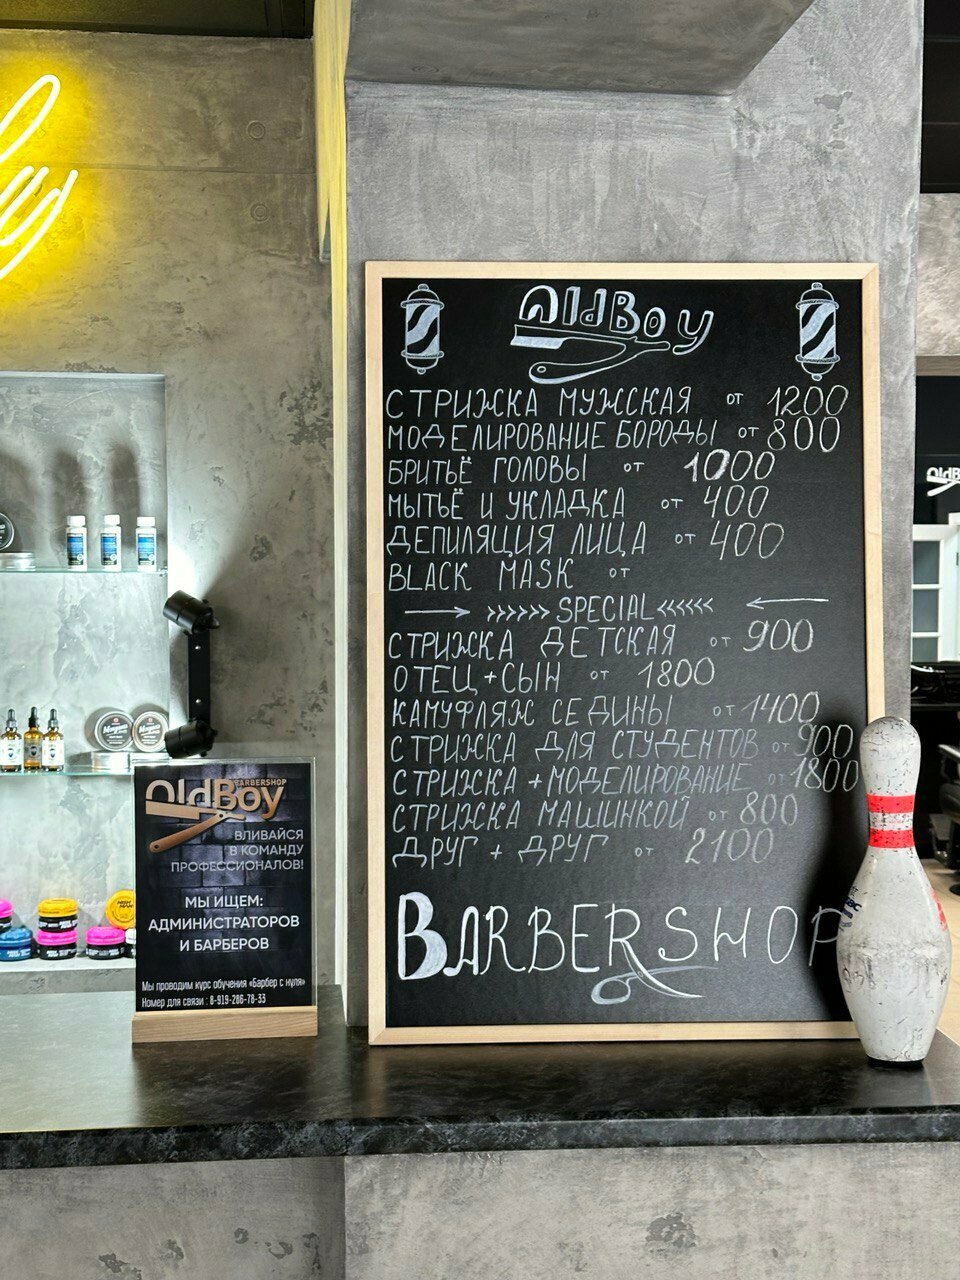 OldBoy
СТРИЖКА МУЖСКАЯ от 1200
МОДЕЛИРОВАНИЕ БОРОДЫ от 800
БРИТЬЁ ГОЛОВЫ от 1000
МЫТЬЁ И УКЛАДКА от 400
ДЕПИЛЯЦИЯ ЛИЦА от 400
BLACK MASK от
→ »»»» SPECIAL ««« ←
СТРИЖКА ДЕТСКАЯ от 900
ОТЕЦ + СЫН от 1800
КАМУФЛЯЖ СЕДИНЫ от 1400
СТРИЖКА ДЛЯ СТУДЕНТОВ от 900
СТРИЖКА + МОДЕЛИРОВАНИЕ от 1800
СТРИЖКА МАШИНКОЙ от 800
ДРУГ + ДРУГ от 2100
BARBERSHOP
BARBERSHOP
OldBoy
ВЛИВАЙСЯ
В КОМАНДУ
ПРОФЕССИОНАЛОВ!
МЫ ИЩЕМ:
АДМИНИСТРАТОРОВ
И БАРБЕРОВ
Мы проводим курс обучения «Барбер с нуля»
Номер для связи : 8-919-286-78-33